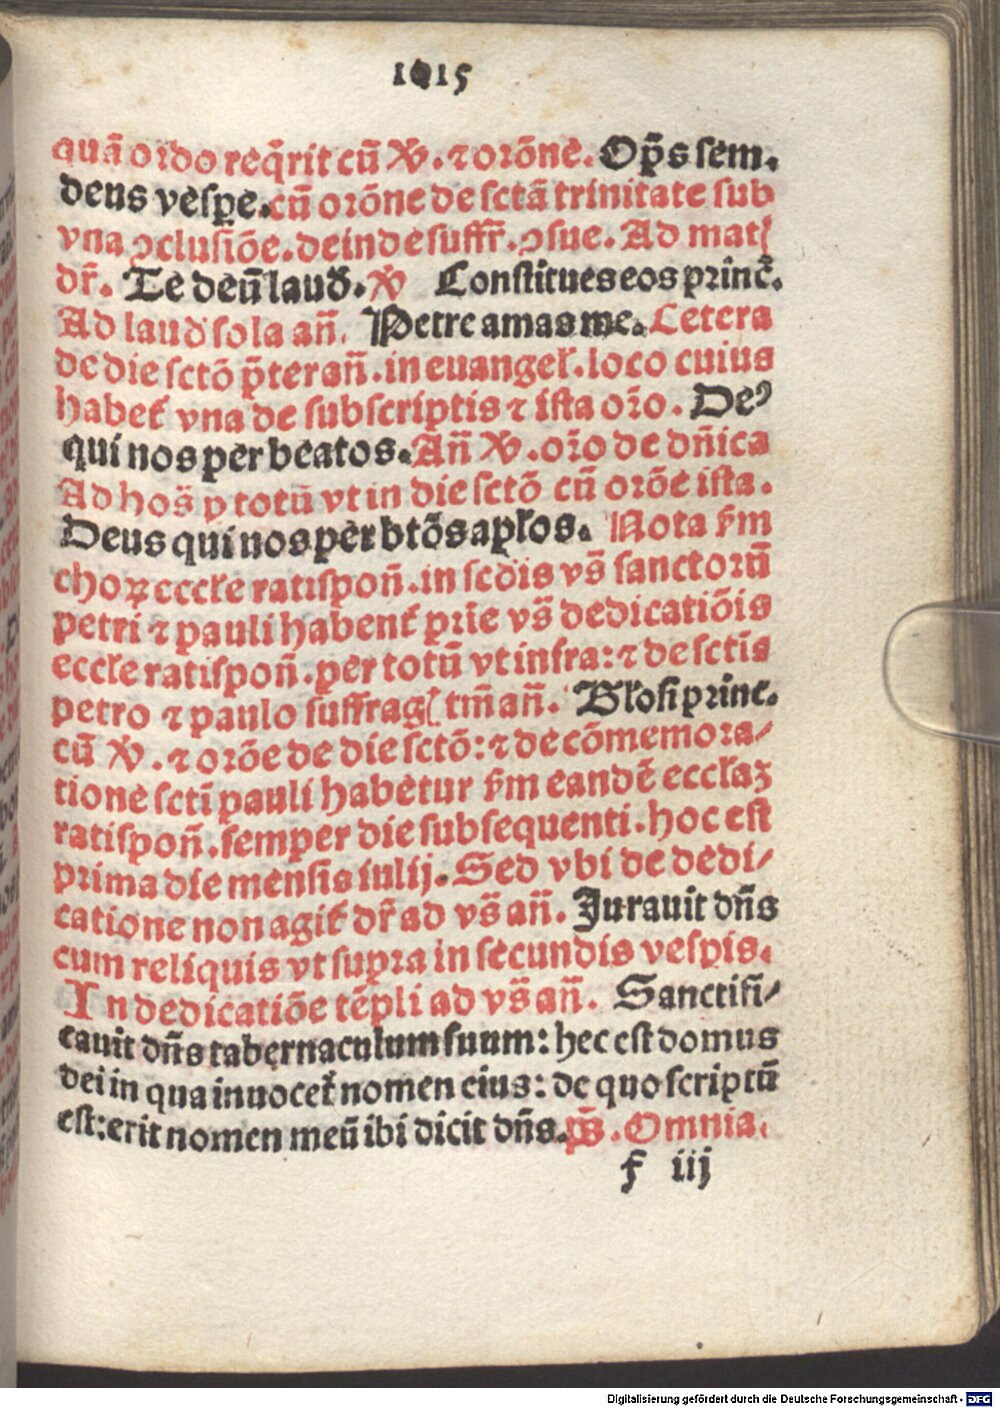 1015
quā ordo reqͥrit cū ℣. ⁊ orōne. Op̄s sem.
deus vespe. cū orōne de sctā trinitate sub
vna ꝯclusiōe. deinde suffr̄. ꝯsue. Ad mat
dr̄. Te deū laud. ℣ Constitues eos princ̄.
Ad laud sola an̄. Petre amas me. Cetera
de die sctō p̄ter an̄. in euangeł. loco cuius
habet̄ vna de subscriptis ⁊ ista oro. Deꝰ
qui nos per beatos. An̄ ℣. oro de dn̄ica
Ad hos̄ p totū vt in die sctō cū orōe ista.
Deus qui nos per btōs apłos. Nota ẜm
choꝝ eccłe ratispon̄. in scdis vs̄ sanctorū
petri ⁊ pauli habent̄ prie vs̄ dedicatiōis
eccłe ratispon̄. per totū vt infra: ⁊ de sctīs
petro ⁊ paulo suffrag tm̄ an̄. Głosi princ.
cū ℣. ⁊ orōe de die sctō: ⁊ de cōmemora⸗
tione sctī pauli habetur ẜm eandē eccłaꝫ
ratispon̄. semper die subsequenti. hoc est
prima die mensis iulij. Sed vbi de dedi⸗
catione non agit̄ dr̄ ad vs̄ an̄. Jurauit dn̄s
cum reliquis vt supra in secundis vespis.
In dedicatiōe tēpli ad vs̄ an̄. Sanctifi⸗
cauit dn̄s tabernaculum suum: hec est domus
dei in qua inuocet̄ nomen eius: de quo scriptū
est: erit nomen meū ibi dicit dn̄s. ps̄. Omnia.
f iij
Digitalisierung gefördert durch die Deutsche Forschungsgemeinschaft - DFG